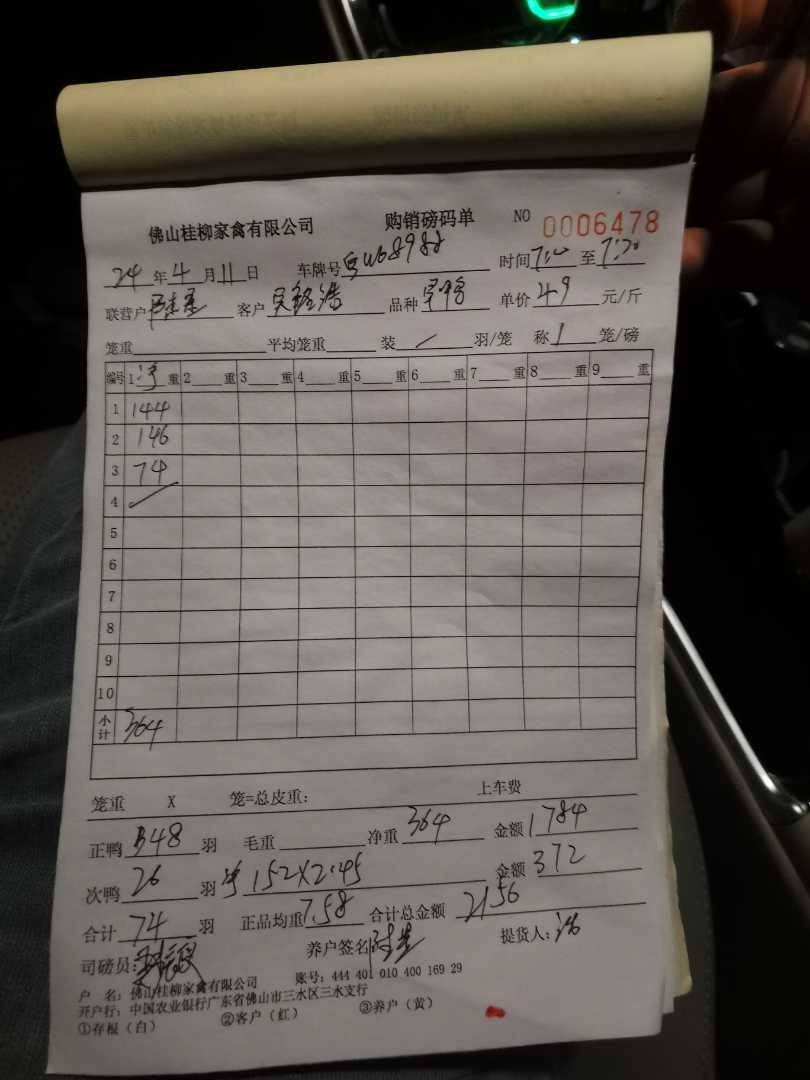 佛山桂柳家禽有限公司 购销磅码单 NO 0006478
24年4月11日 车牌号 时间 至
联营户 客户 品种 单价4.9元/斤
笼重 平均笼重 装 / 羽/笼 称 1 笼/磅
编号 1 净 重 2 重 3 重 4 重 5 重 6 重 7 重 8 重 9 重
1 144
2 146
3 74
4
5
6
7
8
9
10
小计 364
笼重 X 笼=总皮重: 上车费
正鸭 48 羽 毛重 净重 364 金额 1784
次鸭 26 羽 净 152X2.45 金额 372
合计 74 羽 正品均重 7.58 合计总金额 2156
司磅员: 养户签名 提货人:
户 名: 佛山桂柳家禽有限公司 账号: 444 401 010 400 169 29
开户行: 中国农业银行广东省佛山市三水区三水支行
①存根(白) ②客户(红) ③养户(黄)